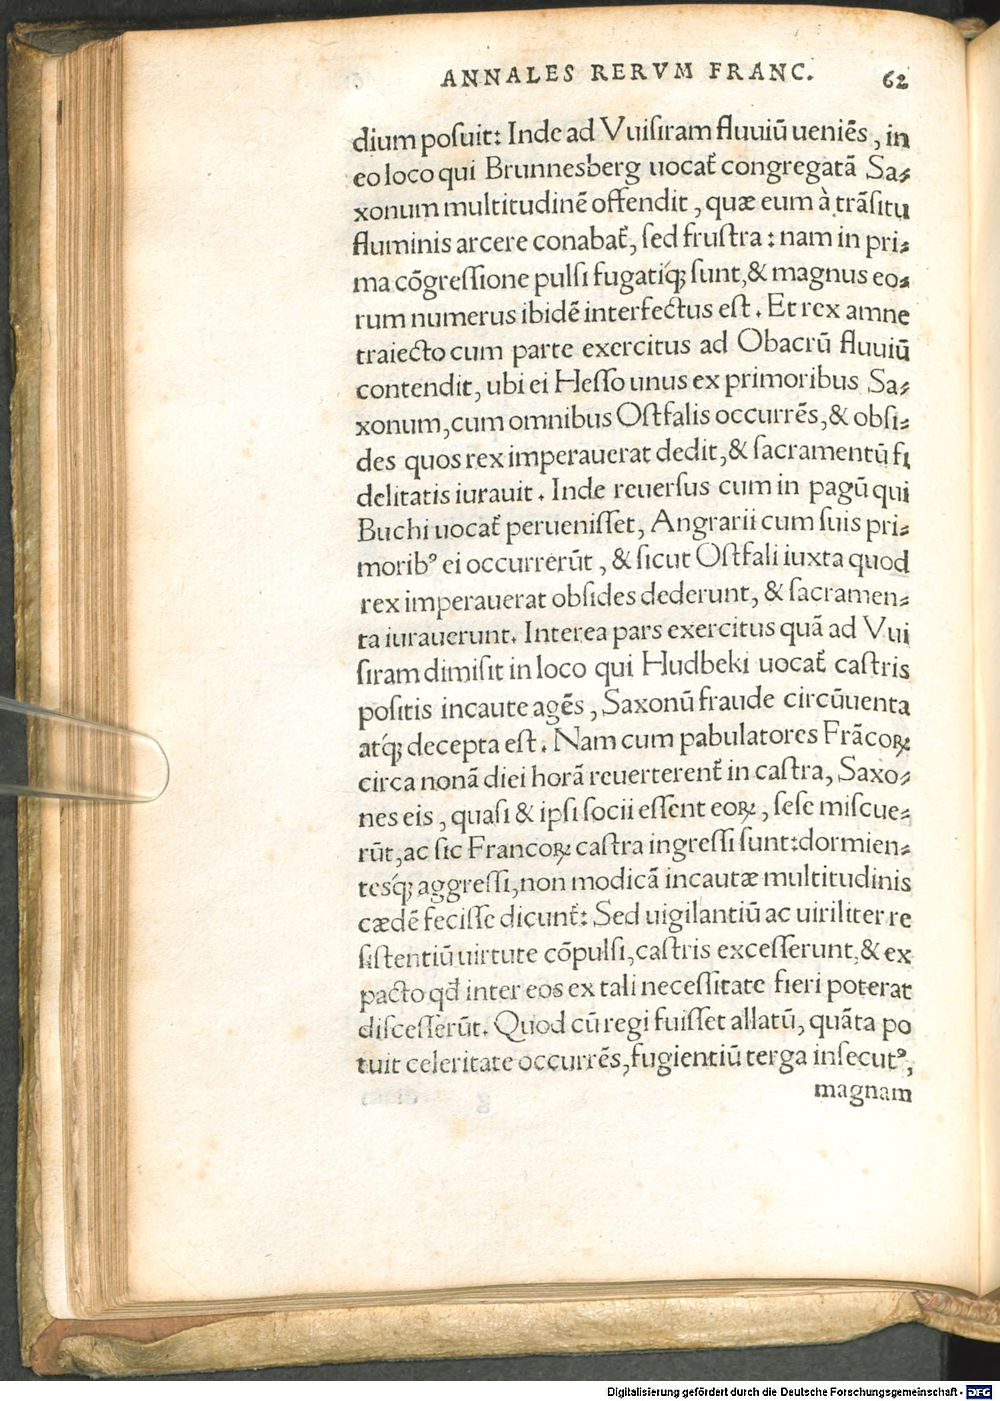 ANNALES RERVM FRANC. 62
dium posuit: Inde ad Vuisiram fluuiũ ueniẽs, in
eo loco qui Brunnesberg uocat᷑ congregatã Sa⸗
xonum multitudinẽ offendit, quæ eum à trãsitu
fluminis arcere conabat᷑, sed frustra: nam in pri⸗
ma cõgressione pulsi fugatiq́ꝫ sunt, & magnus eo⸗
rum numerus ibidẽ interfectus est. Et rex amne
traiecto cum parte exercitus ad Obacrũ fluuiũ
contendit, ubi ei Hesso unus ex primoribus Sa⸗
xonum, cum omnibus Ostfalis occurrẽs, & obsi⸗
des quos rex imperauerat dedit, & sacramentũ fi
delitatis iurauit. Inde reuersus cum in pagũ qui
Buchi uocat᷑ peruenisset, Angrarii cum suis pri⸗
moribꝰ ei occurrerũt, & sicut Ostfali iuxta quod
rex imperauerat obsides dederunt, & sacramen⸗
ta iurauerunt. Interea pars exercitus quã ad Vui
siram dimisit in loco qui Hudbeki uocat᷑ castris
positis incaute agẽs, Saxonũ fraude circũuenta
atq́ꝫ decepta est. Nam cum pabulatores Frãcoꝝ
circa nonã diei horã reuerterent᷑ in castra, Saxo⸗
nes eis, quasi & ipsi socii essent eoꝝ, sese miscue⸗
rũt, ac sic Francoꝝ castra ingressi sunt: dormien⸗
tesq́ꝫ aggressi, non modicã incautæ multitudinis
cædẽ fecisse dicunt᷑: Sed uigilantiũ ac uiriliter re
sistentiũ uirtute cõpulsi, castris excesserunt, & ex
pacto qđ inter eos ex tali necessitate fieri poterat
discesserũt. Quod cũ regi fuisset allatũ, quãta po
tuit celeritate occurrẽs, fugientiũ terga insecutꝰ,
magnam
Digitalisierung gefördert durch die Deutsche Forschungsgemeinschaft - DFG